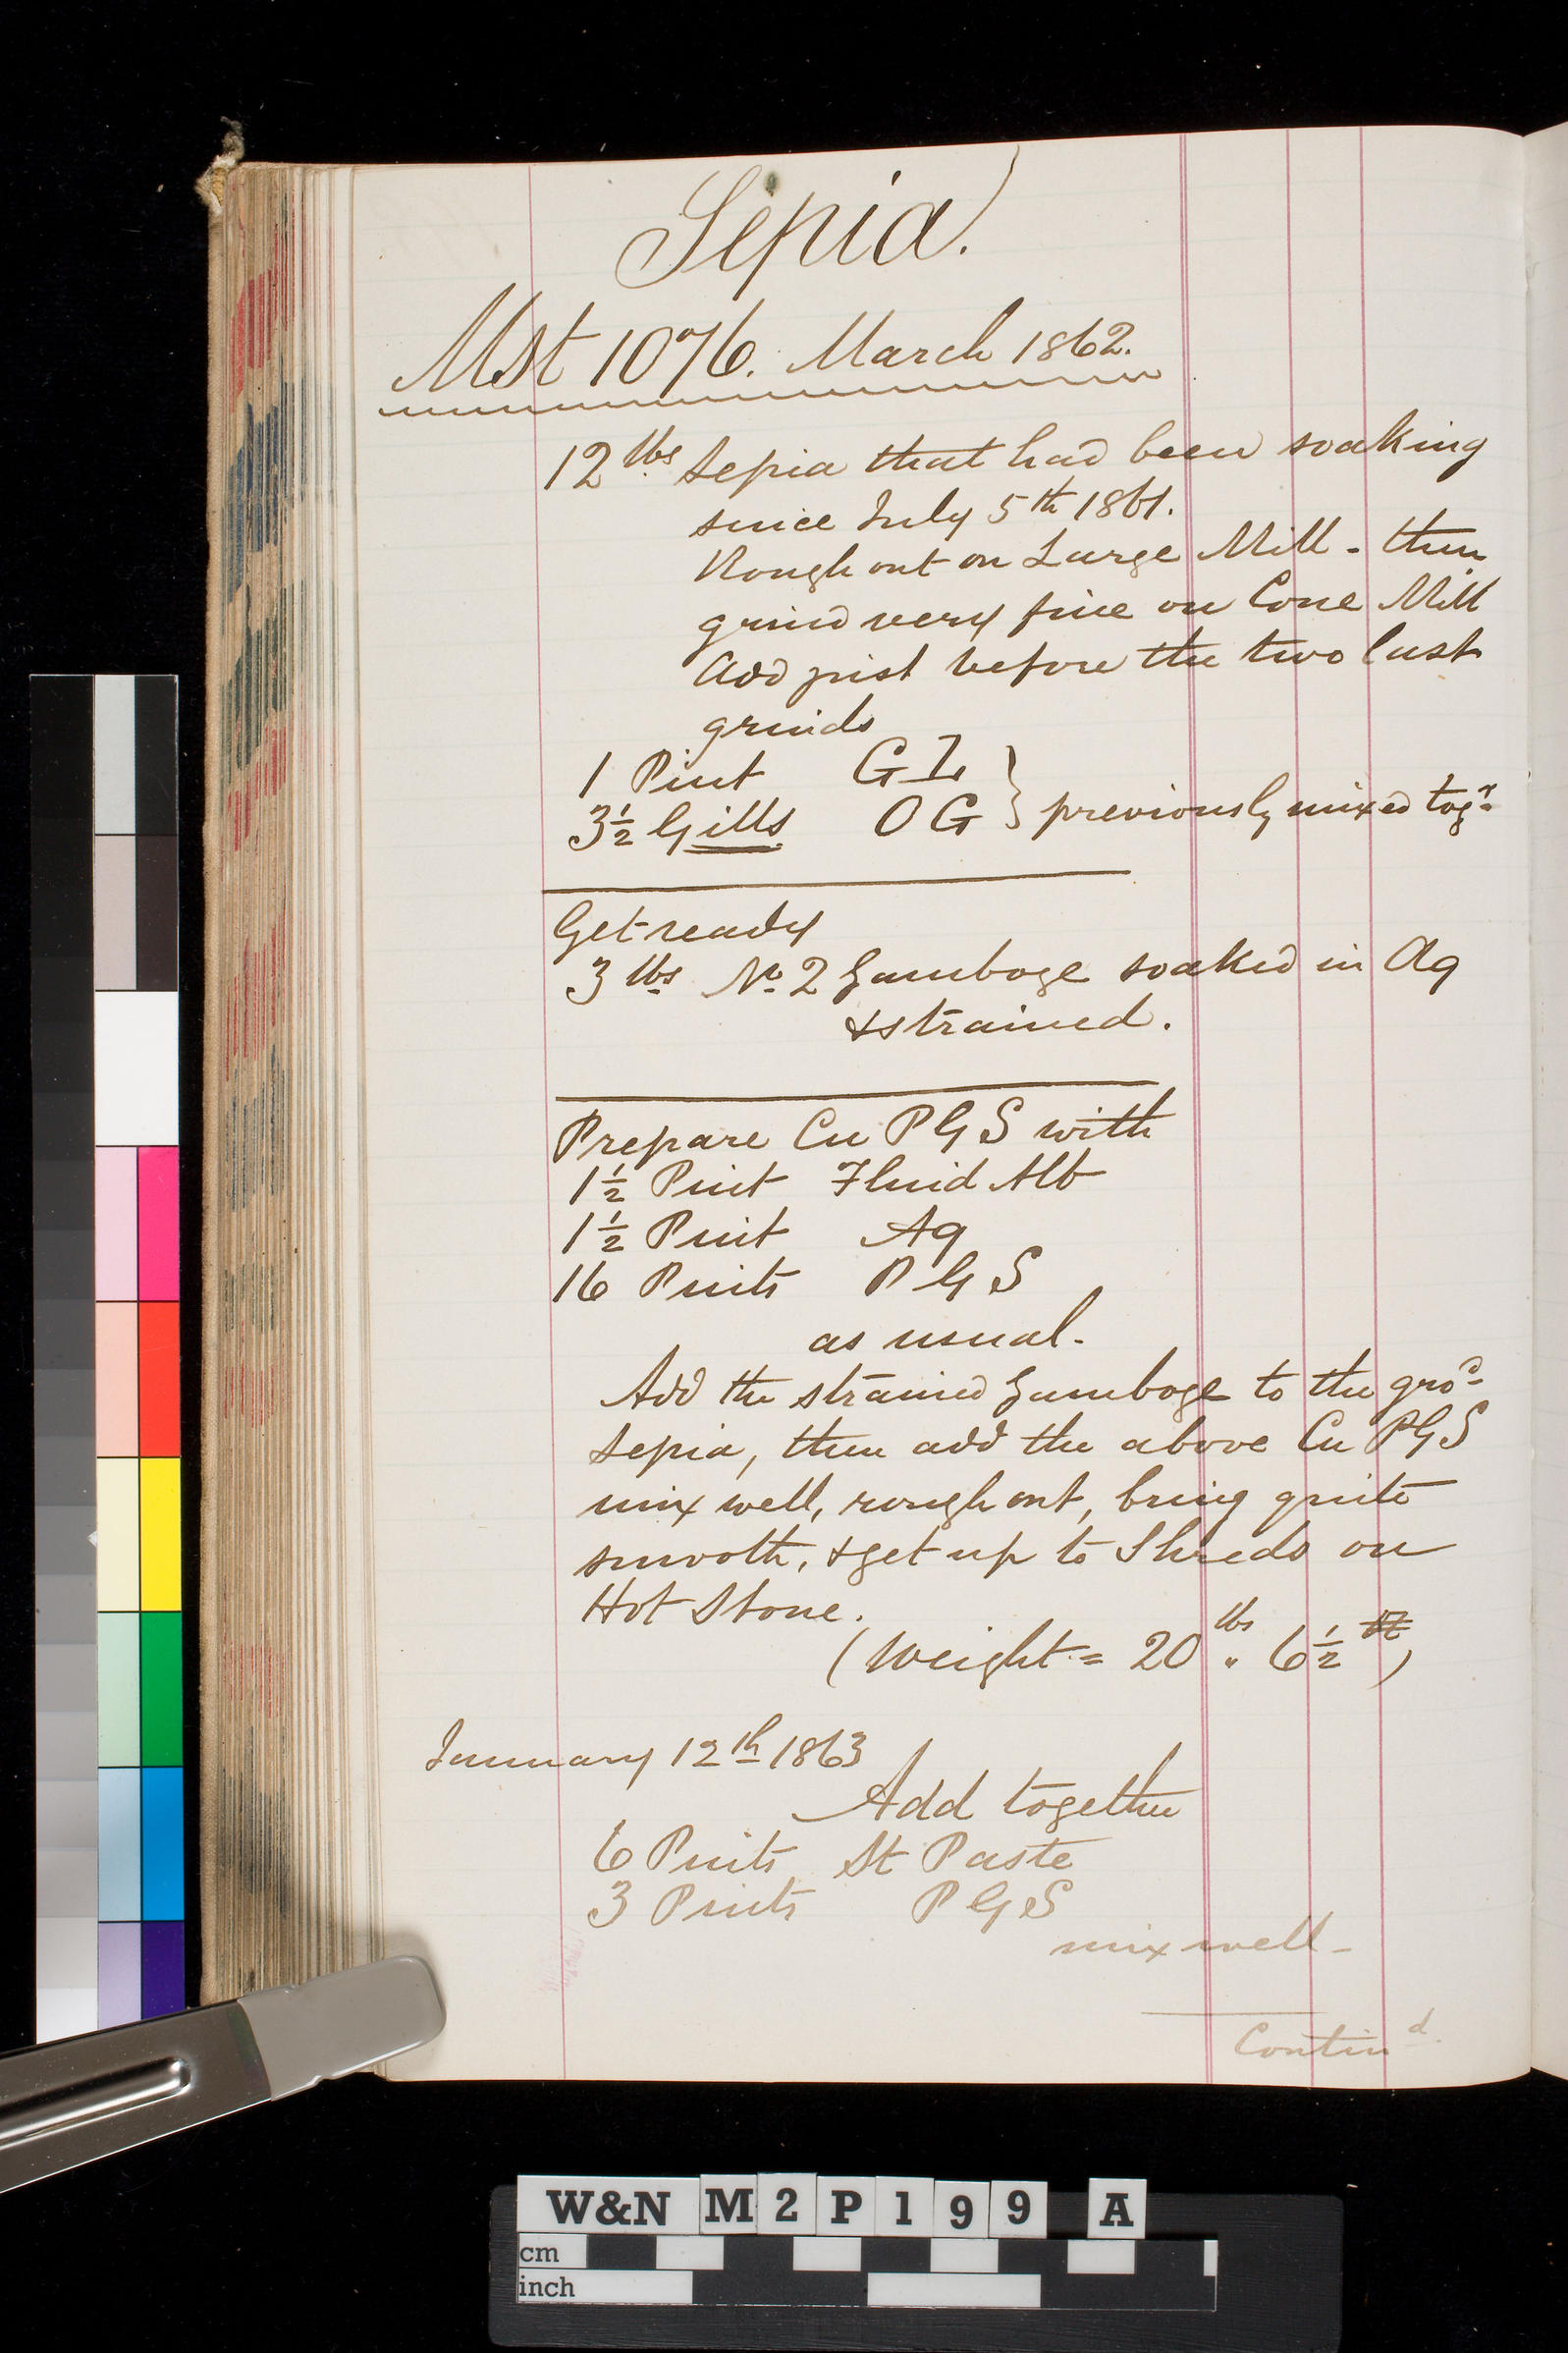 Sepia.
Mst 1076. March 1862.
12 lbs Sepia that had been soaking
since July 5th 1861.
Rough out on Large Mill - then
grind very fine on Cone Mill
Add just before the two last
grinds
1 Pint GL
3½ Gills OG } previously mixed togr
Get ready
3 lbs No 2 Gamboge soaked in Aq
& strained.
Prepare Cu PGS with
1½ Pint Fluid Alb
1½ Pint Aq
16 Pints PGS
as usual.
Add the strained Gamboge to the grod
Sepia, then add the above Cu PGS
mix well, rough out, bring quite
smooth, & get up to Shreds on
Hot Stone.
(Weight = 20 lbs " 6½)
January 12th 1863
Add together
6 Pints St Paste
3 Pints PGS
mix well -
Contind.
W&N M2P199 A
cm
inch